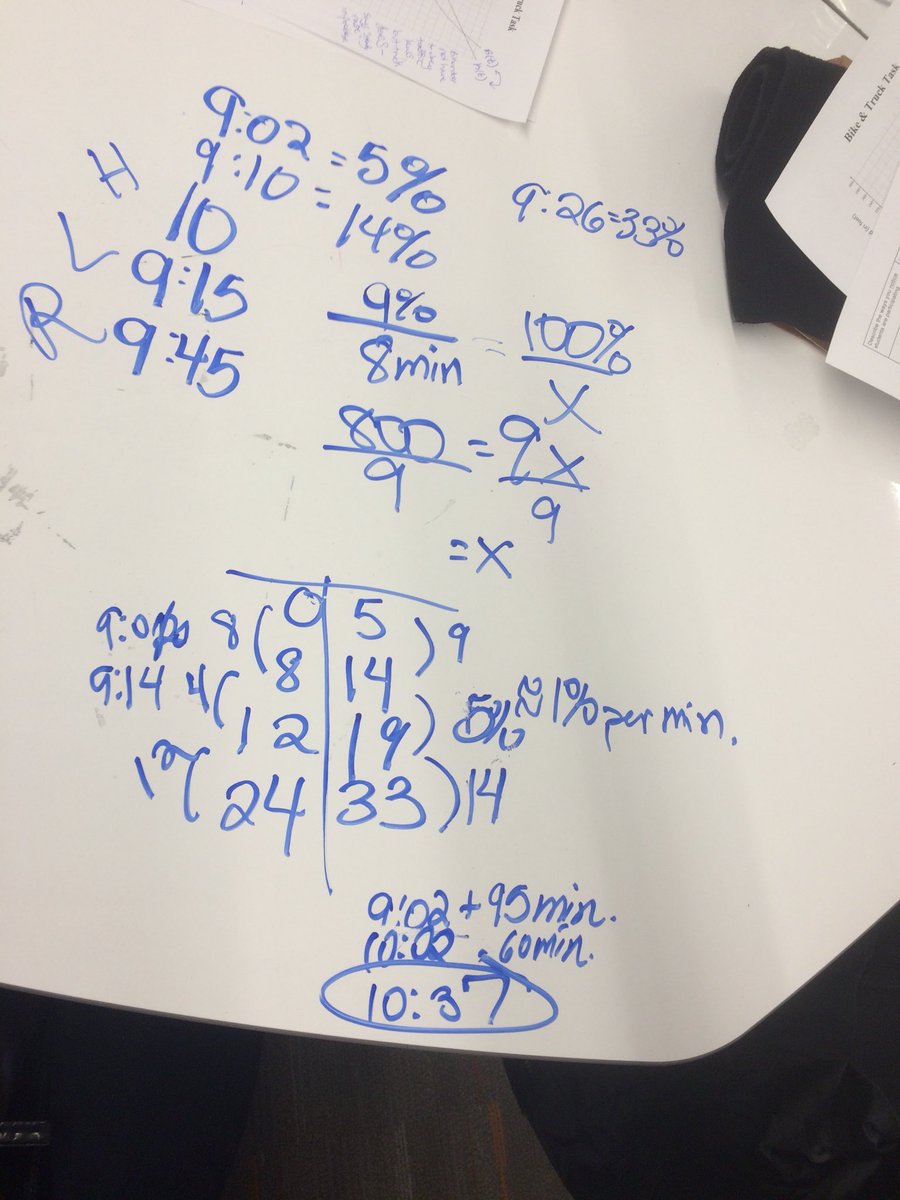 9:02 = 5%
9:10 = 14%
9:26=33%
H 10
L 9:15
R 9:45
9%
8min
=
100%
X
800
9
=
9X
9
=X
0 5
8( )9
8 14
9:14 4(
12 19
) 5% ≈ 1% per min.
12(
24 33
)14
9:02 + 95min.
10:00 - 60min.
10:37
Bike & Truck Task
ruck Task
Describe the ways you notice
students are participating